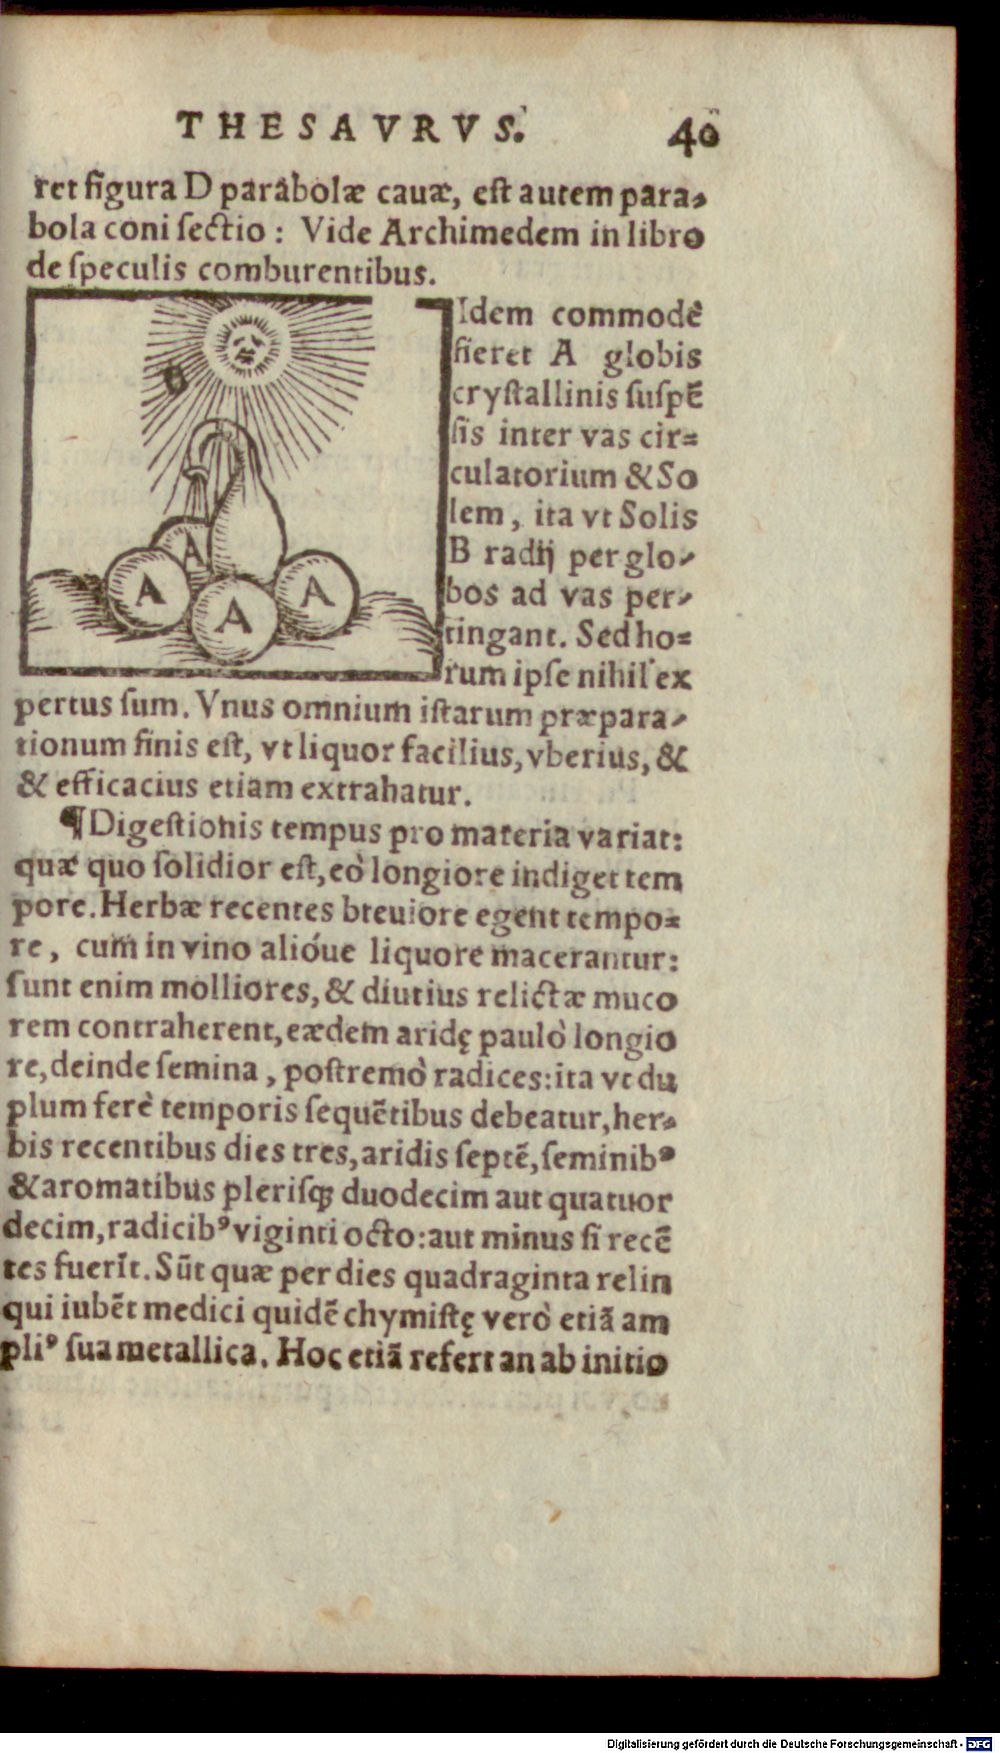 THESAVRVS. 40
ret figura D parabolæ cauæ, eſt autem para-
bola coni ſectio : Vide Archimedem in libro
de ſpeculis comburentibus.
Idem commodè
fieret A globis
cryſtallinis ſuſpē
ſis inter vas cir=
culatorium & So
lem, ita vt Solis
B radij per glo-
bos ad vas per-
tingant. Sed ho=
rum ipſe nihil ex
B
A
A
A
A
pertus ſum. Vnus omnium iſtarum præpara-
tionum finis eſt, vt liquor facilius, vberius, &
& efficacius etiam extrahatur.
¶ Digeſtionis tempus pro materia variat:
quæ quo ſolidior eſt, eò longiore indiget tem
pore. Herbæ recentes breuiore egent tempo=
re, cum in vino alióue liquore macerantur:
ſunt enim molliores, & diutius relictæ muco
rem contraherent, eædem aridę paulò longio
re, deinde ſemina, poſtremò radices: ita vt du
plum ferè temporis ſequētibus debeatur, her-
bis recentibus dies tres, aridis ſeptē, ſeminibꝰ
& aromatibus pleriſqꝫ duodecim aut quatuor
decim, radicibꝰ viginti octo: aut minus ſi recē
tes fuerīt. Sūt quæ per dies quadraginta relin
qui iubēt medici quidē chymiſtę verò etiā am
pliꝰ ſua metallica. Hoc etiā refert an ab initio
Digitalisierung gefördert durch die Deutsche Forschungsgemeinschaft - DFG